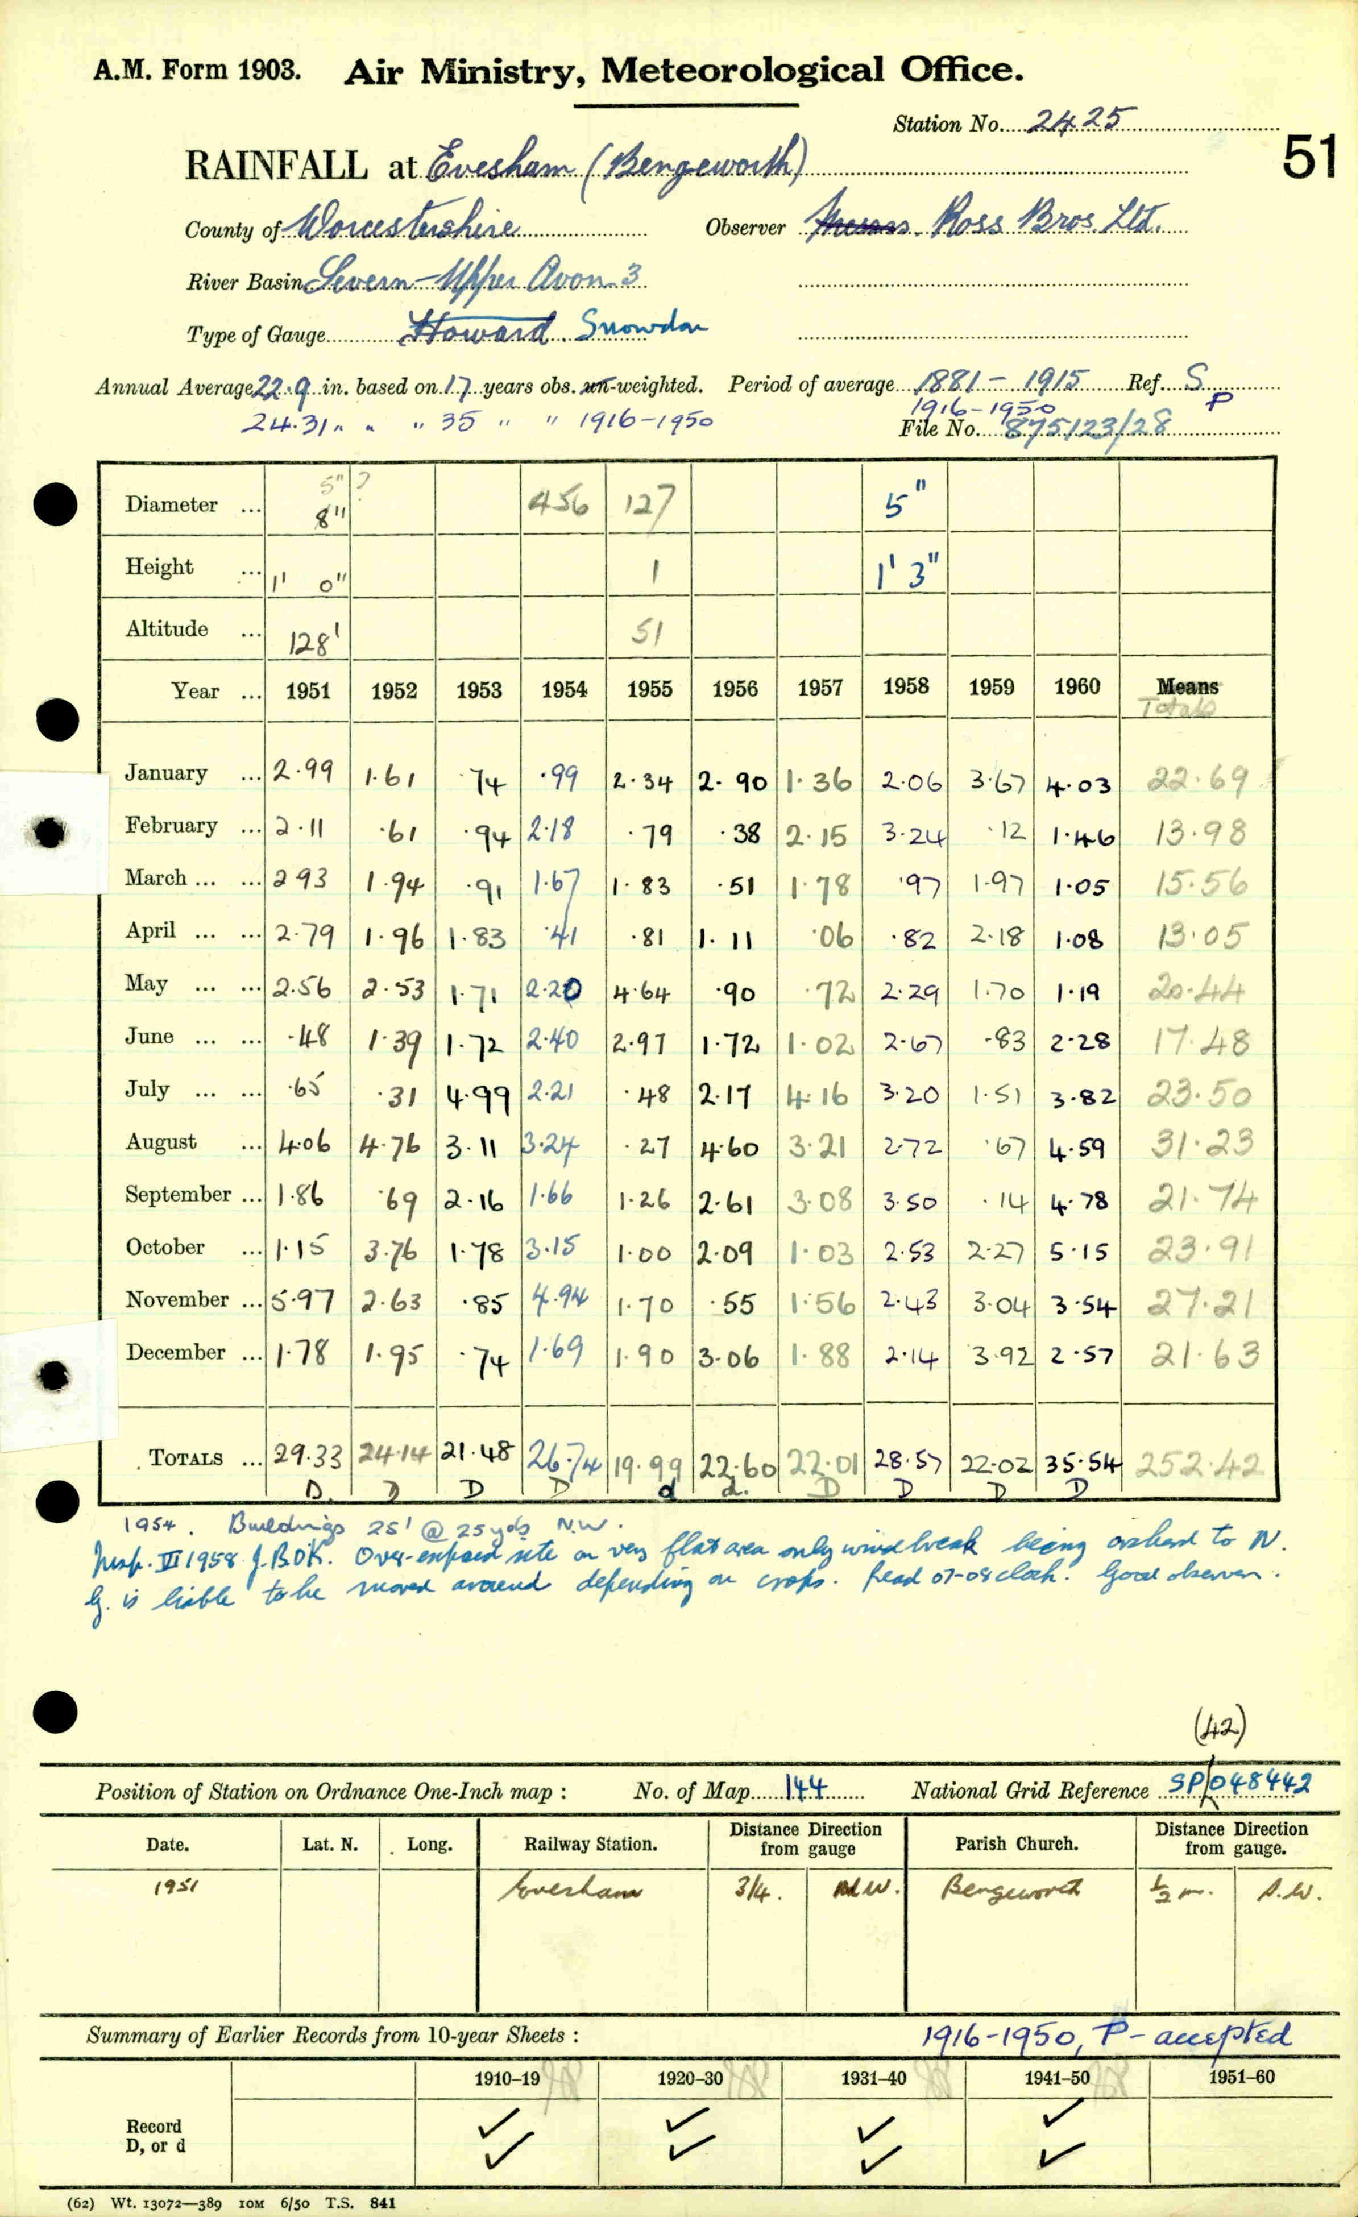 A.M. Form 1903. Air Ministry, Meteorological Office.
Station No. 2425
51
RAINFALL at Evesham (Bengeworth)
County of Worcestershire Observer Messrs. Ross Bros. Ltd.
River Basin Severn - Upper Avon 3
Type of Gauge Howard. Snowdon
Annual Average 22.9 in. based on 17 years obs. un-weighted. Period of average 1881 - 1915 Ref. S
24.31 " " " 35 " " 1916-1950 1916-1950 P
File No. 875123/28
5" ?
Diameter ... 8" 456 127 5"
Height ... 1' 0" 1 1' 3"
Altitude ... 128' 51
Year ... 1951 1952 1953 1954 1955 1956 1957 1958 1959 1960 Means
Totals
January ... 2.99 1.61 .74 .99 2.34 2.90 1.36 2.06 3.67 4.03 22.69
February ... 2.11 .61 .94 2.18 .79 .38 2.15 3.24 .12 1.46 13.98
March ... ... 2 93 1.94 .91 1.67 1.83 .51 1.78 .97 1.97 1.05 15.56
April ... ... 2.79 1.96 1.83 .41 .81 1.11 .06 .82 2.18 1.08 13.05
May ... ... 2.56 2.53 1.71 2.20 4.64 .90 .72 2.29 1.70 1.19 20.44
June ... ... .48 1.39 1.72 2.40 2.97 1.72 1.02 2.67 .83 2.28 17.48
July ... ... .65 .31 4.99 2.21 .48 2.17 4.16 3.20 1.51 3.82 23.50
August ... 4.06 4.76 3.11 3.24 .27 4.60 3.21 2.72 .67 4.59 31.23
September ... 1.86 .69 2.16 1.66 1.26 2.61 3.08 3.50 .14 4.78 21.74
October ... 1.15 3.76 1.78 3.15 1.00 2.09 1.03 2.53 2.27 5.15 23.91
November ... 5.97 2.63 .85 4.94 1.70 .55 1.56 2.43 3.04 3.54 27.21
December ... 1.78 1.95 .74 1.69 1.90 3.06 1.88 2.14 3.92 2.57 21.63
TOTALS ... 29.33 24.14 21.48 26.74 19.99 22.60 22.01 28.57 22.02 35.54 252.42
D. D D D d d. D D D D
1954. Buildings 25' @ 25 yds N.W.
Insp. III 1958 J.BOK. Over-exposed site on very flat area only windbreak being orchard to N.
G. is liable to be moved around depending on crops. Read 07-08 clock. Good observer.
(42)
Position of Station on Ordnance One-Inch map : No. of Map 144 National Grid Reference SP/048442
Date. Lat. N. Long. Railway Station. Distance from gauge Direction Parish Church. Distance from gauge. Direction
1951 Evesham 3/4. N.W. Bengeworth 1/2 m. S.W.
Summary of Earlier Records from 10-year Sheets : 1916-1950, P - accepted
1910–19 1920–30 1931–40 1941–50 1951–60
Record ✓ ✓ ✓ ✓
D, or d ✓ ✓ ✓ ✓
(62) Wt. 13072—389 10M 6/50 T.S. 841